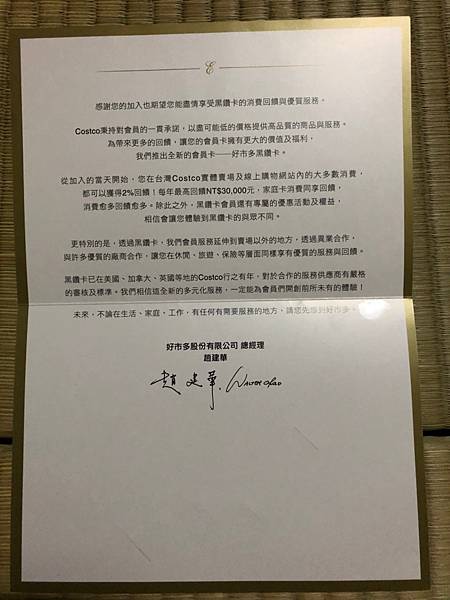 E
感謝您的加入也期望您能盡情享受黑鑽卡的消費回饋與優質服務。
Costco秉持對會員的一貫承諾，以盡可能低的價格提供高品質的商品與服務。
為帶來更多的回饋，讓您的會員卡擁有更大的價值及福利，
我們推出全新的會員卡──好市多黑鑽卡。
從加入的當天開始，您在台灣Costco實體賣場及線上購物網站內的大多數消費，
都可以獲得2%回饋！每年最高回饋NT$30,000元，家庭卡消費同享回饋，
消費愈多回饋愈多。除此之外，黑鑽卡會員還有專屬的優惠活動及權益，
相信會讓您體驗到黑鑽卡的與眾不同。
更特別的是，透過黑鑽卡，我們會員服務延伸到賣場以外的地方，透過異業合作，
與許多優質的廠商合作，讓您在休閒、旅遊、保險等層面同樣享有優質的服務與回饋。
黑鑽卡已在美國、加拿大、英國等地的Costco行之有年，對於合作的服務供應商有嚴格
的審核及標準。我們相信這全新的多元化服務，一定能為會員們開創前所未有的體驗！
未來，不論在生活、家庭、工作，有任何有需要服務的地方，請您先想到好市多。
好市多股份有限公司 總經理
趙建華
趙建華